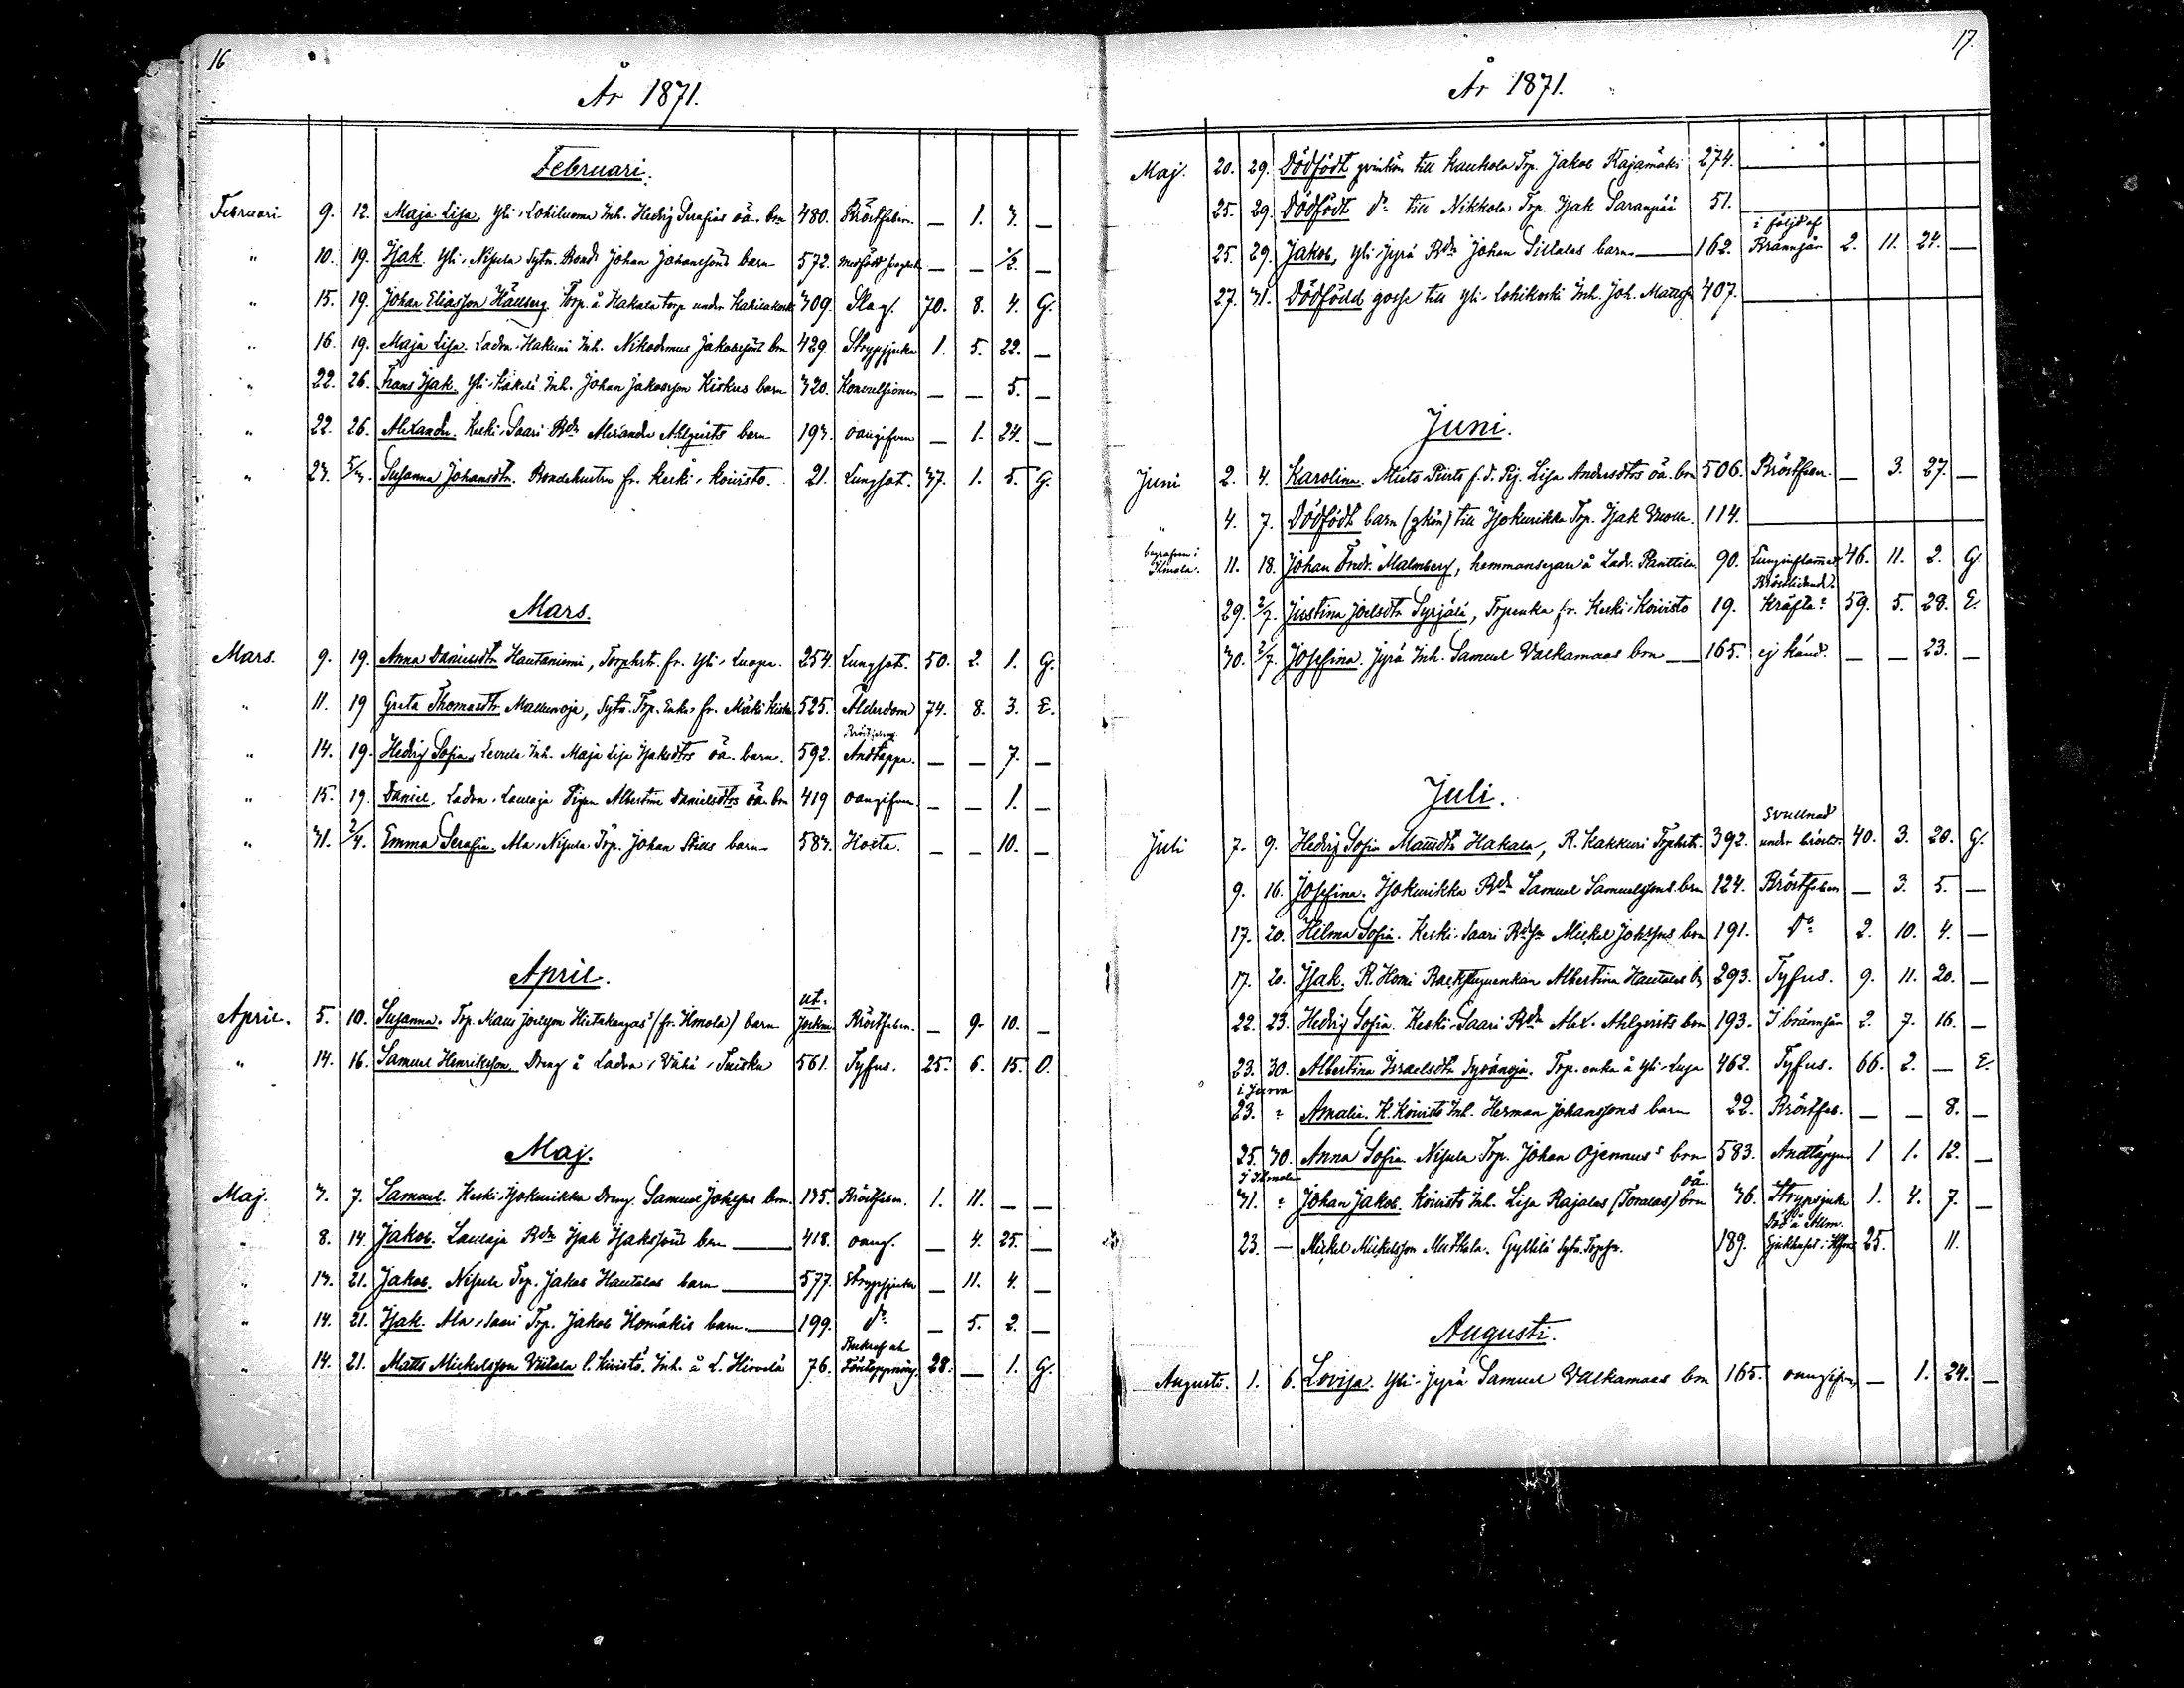 16
År 1871.
Februari.
Februari 9. 12. Maja Lisa, Yli-Lohiluoma Inh. Hedvig Serafias oä. brn 480. Bröstfeber. — 1. 3. —
" 10. 19. Isak. Yli-Nisula Sytn. Bonde Johan Johanssons barn 572. medfödd — — ½. —
" 15. 19. Johan Eliasson Hällberg. Torp. å Hakala torp under 309. Slag. 70. 8. 4. G.
" 16. 19. Maja Lisa. Ladva-Hakuni Inh. Nikodemus Jakobssons brn 429. Strypsjuka 1. 5. 22. —
" 22. 26. Frans Isak. Yli-Käkelä Inh. Johan Jakobsson Kiskus barn 320. Konvulsioner — — 5. —
" 22. 26. Alexander. Keski-Saari Bdn Alexander Ahlqvists barn 193. oangifven — 1. 24. —
" 23. 5/3. Susanna Johansdtr. Bondehustru fr. Keski-Koivisto. 21. Lungsot. 37. 1. 5. G.
Mars.
Mars. 9. 19. Anna Danielsdtr Hautaniemi, Torphstr. fr. Yli-Luopa. 254. Lungsot. 50. 2. 1. G.
" 11. 19 Greta Thomasdtr Mallenoja, Sytn. Torp. Enka fr. Mäki 525. Ålderdom 74. 8. 3. E.
" 14. 19. Hedvig Sofia. Inh. Maja Lisa Isaksdtrs oä. barn. 592. Andtäppa. — — 7. —
" 15. 19. Daniel. Ladva-Laulaja Pigan Albertina Danielsdtrs oä. brn 419 oangifven. — — 1. —
" 31. 2/4. Emma Serafia. Ala-Nisula Torp. Johan Stills barn 583. Hosta. — — 10. —
April.
April. 5. 10. Susanna. Torp. Matts Joelsson Hietakangas' (fr. Ilmola) barn ut. Bröstfeber. — 9. 10. —
" 14. 16. Samuel Henriksson. Dreng å Ladva-Vähä-Tuisku 561. Tyfus. 25. 6. 15. O.
Maj.
Maj. 3. 7. Samuel. Keski-Isokurikka Dreng. Samuel Johssns brn. 135. Bröstfeber. 1. 11. — —
" 8. 14. Jakob. Laulaja Bdn Isak Isakssons brn 418. oang. — 4. 25. —
" 13. 21. Jakob. Nisula Torp. Jakob Hautalas barn 577. Strypsjuka — 11. 4. —
" 14. 21. Isak. Ala-Saari Torp. Jakob Homäkis barn. 199. do — 5. 2. —
" 14. 21. Matts Mickelsson Viitala Inh. å L. Hirvelä 76. Förstoppning. 28. — 1. G.
17.
År 1871.
Maj. 20. 29. Dödfödt qvinkön till Kaukola Torp. Jakob Rajamäki 274.
25. 29. Dödfödt do till Nikkola Torp. Isak Saranpää 51.
25. 29. Jakob, Yli-Jyrä Bdn Johan Siltalas barn 162. i följd af Brännsår 2. 11. 24. —
27. 31. Dödfödd gosse till Yli-Lohikoski Inh. Joh. Mattss 407.
Juni.
Juni 2. 4. Karolina. f.d. Pig. Lisa Andersdtrs oä. brn 506. Bröstfeber. — 3. 27. —
" 4. 7. Dödfödt barn (qkön) till Isokurikka Torp. Isak 114.
begrafven i Ilmola. 11. 18. Johan Fredr. Malmberg, hemmansegare å Ladv. Panttila 90. Lunginflammat. 46. 11. 2. G.
29. 2/7. Justina Joelsdtr Syrjälä, Torpenka fr. Keski-Koivisto 19. Bröstlidande. Kräfta? 59. 5. 28. E.
30. 2/7. Josefina. Jyrä Inh. Samuel Valkamaas brn 165. ej känd. — — 23. —
Juli.
Juli 7. 9. Hedvig Sofia Mattsdtr Hakala, R. Kakkuri Torphstr. 392. Svullnad under bröstet. 40. 3. 20. G.
9. 16. Josefina. Isokurikka Bdn Samuel Samuelssons brn 124. Bröstfeber — 3. 5. —
17. 20. Hilma Sofia. Keski-Saari Mickel Johssns brn 191. Do 2. 10. 4. —
17. 20. Isak. R. Homi Backstuguenkan Albertina Hautalas b. 293. Tyfus. 9. 11. 20. —
22. 23. Hedvig Sofia. Keski-Saari Bdn Alex. Ahlqvists brn 193. I brännsår 2. 7. 16. —
23. 30. Albertina Israelsdtr Syvänoja. Torp. enka å Yli-Luopa 462. Tyfus. 66. 2. — E.
i Jurva
23. " Amalia. K. Koivisto Inh. Herman Johanssons barn 22. Bröstfeb. — — 8. —
25. 30. Anna Sofia Nisula Torp. Johan Ojennus' brn 583. Andtäppa 1 1. 12. —
i Ilmola
31. " Johan Jakob. Koivisto Inh. Lisa Rajalas (Toralas) oä brn 36. Strypsjuka 1. 4. 7. —
23. — Mickel Mickelsson Mustkala. Gyllilä Sytn. Torpsn. 189. Död å Allm. Sjukhuset i Hfors 25. 11.
Augusti.
Augusti. 1. 6. Lovisa. Yli-Jyrä Samuel Valkamaas brn 165. oangifven — 1. 24. —